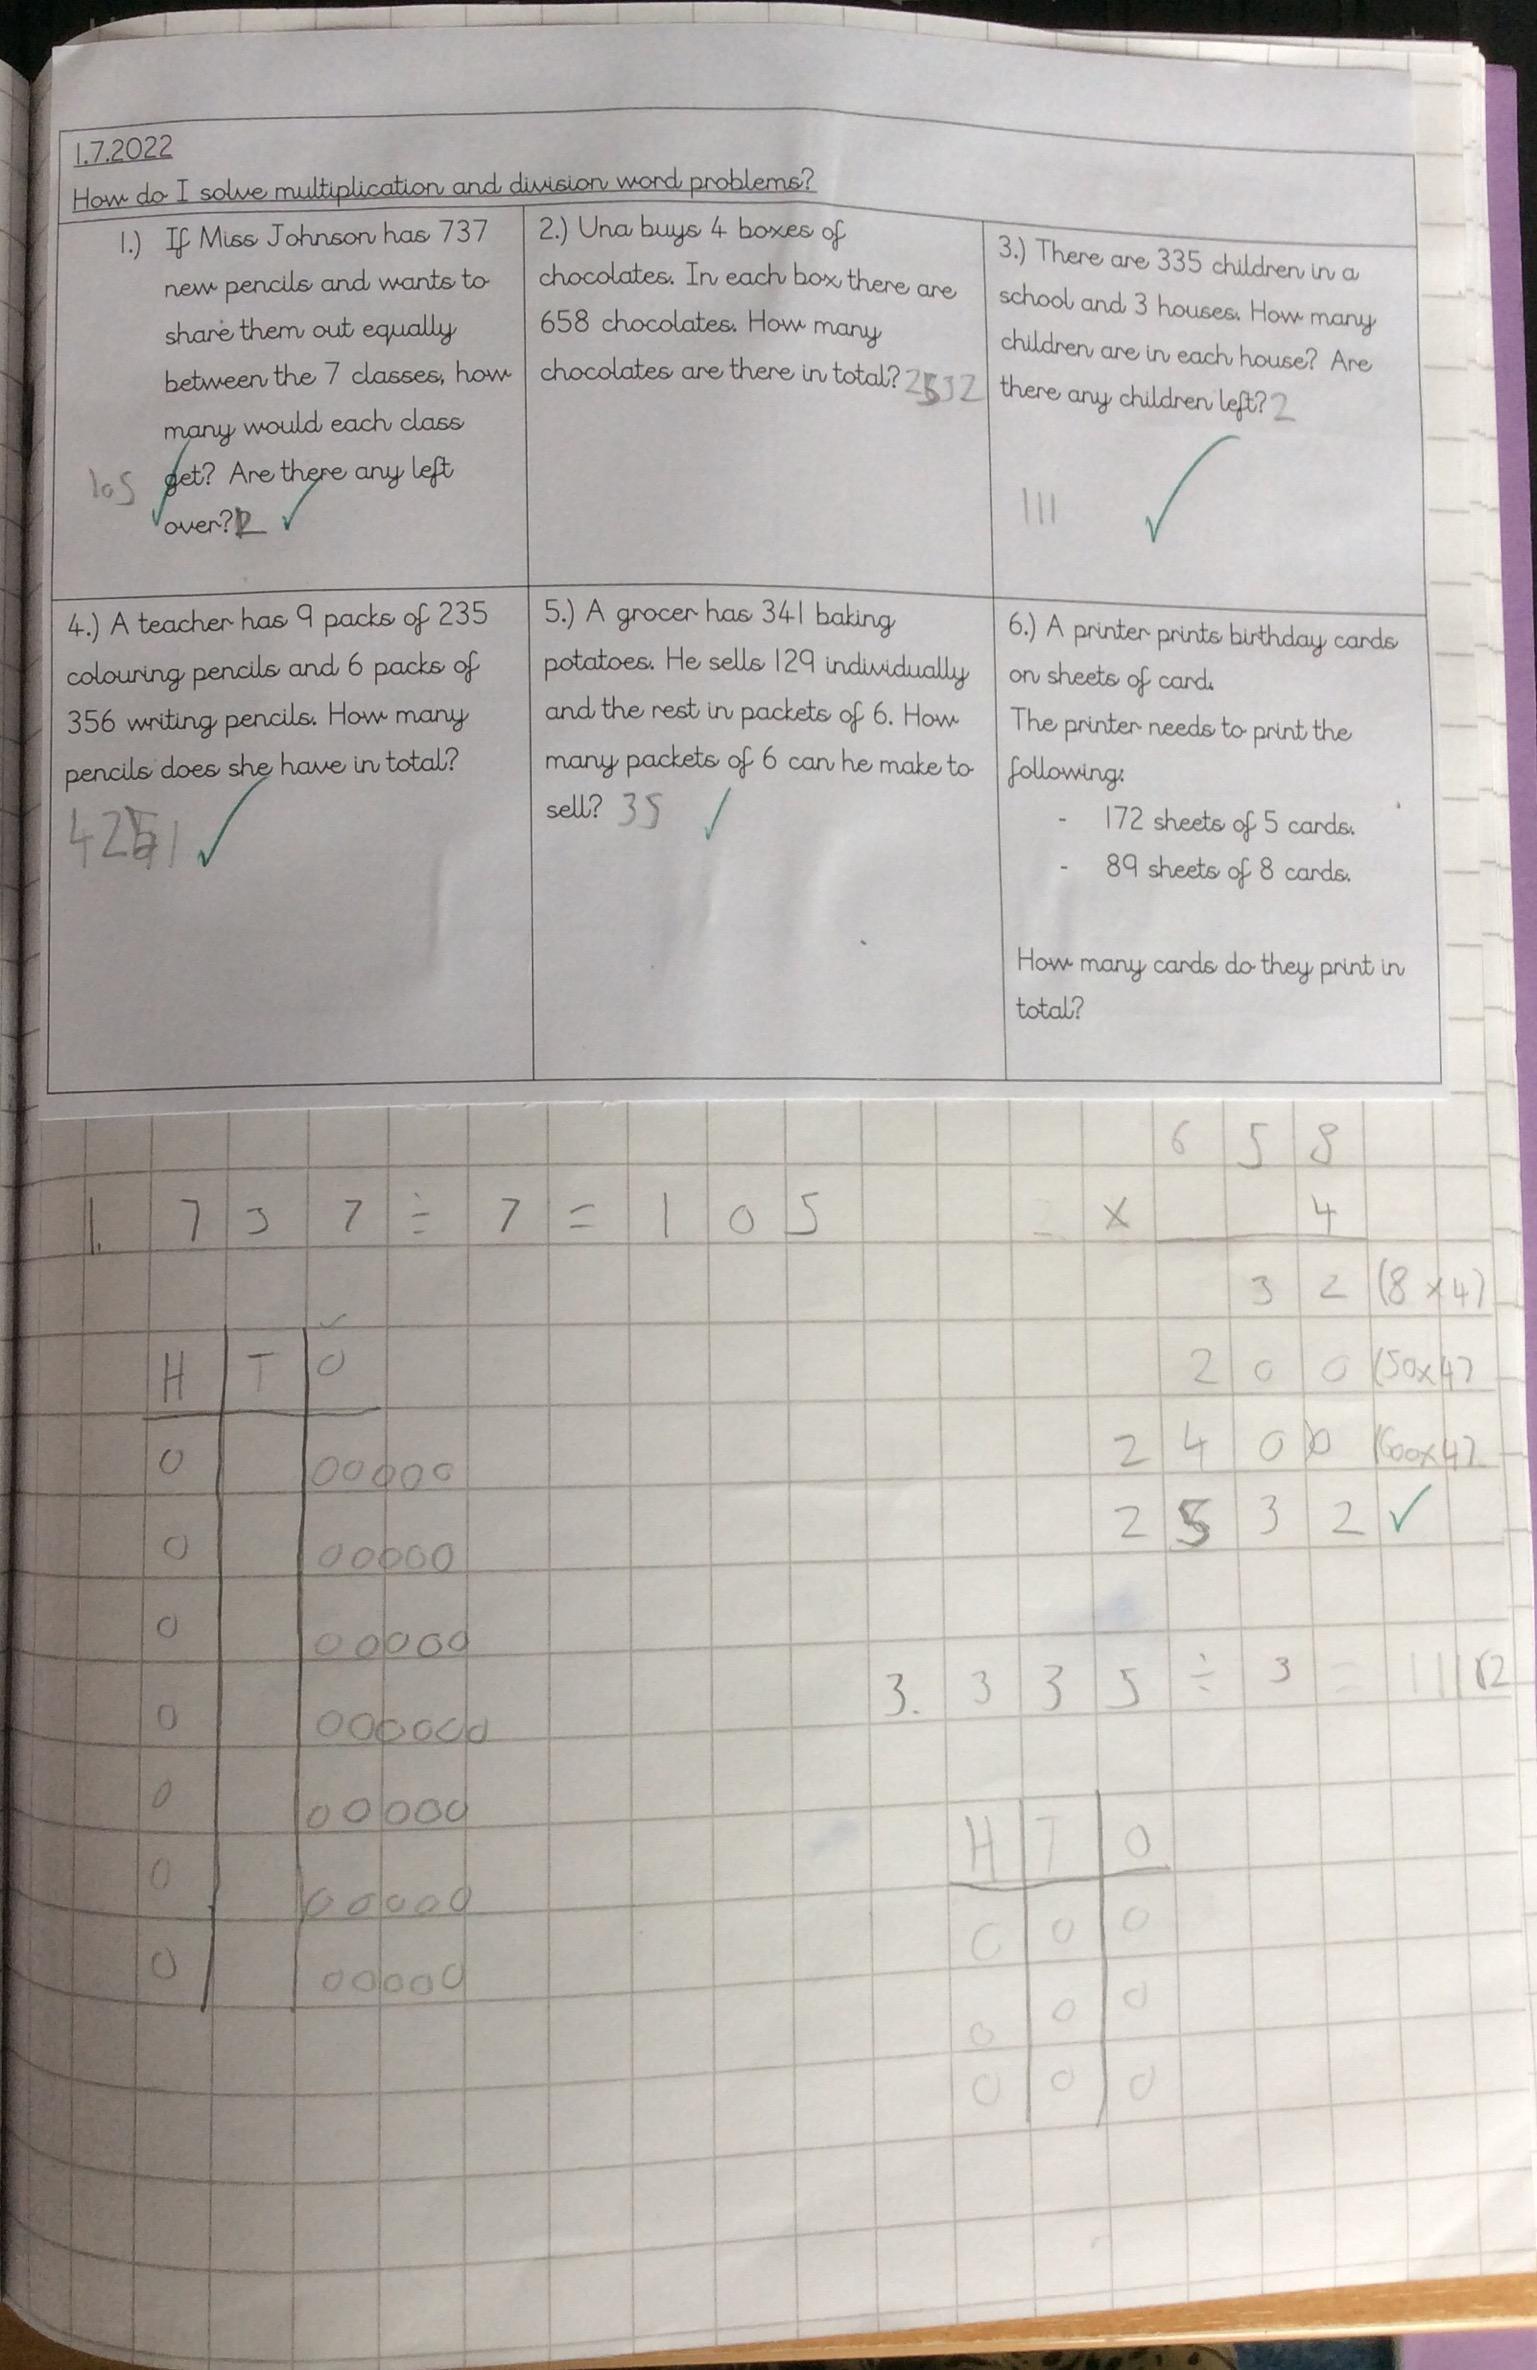 1.7.2022
How do I solve multiplication and division word problems?
1.) If Miss Johnson has 737
new pencils and wants to
share them out equally
between the 7 classes, how
many would each class
get? Are there any left
over? 2
105
2.) Una buys 4 boxes of
chocolates. In each box there are
658 chocolates. How many
chocolates are there in total? 2532
3.) There are 335 children in a
school and 3 houses. How many
children are in each house? Are
there any children left? 2
111
4.) A teacher has 9 packs of 235
colouring pencils and 6 packs of
356 writing pencils. How many
pencils does she have in total?
4251
5.) A grocer has 341 baking
potatoes. He sells 129 individually
and the rest in packets of 6. How
many packets of 6 can he make to
sell? 35
6.) A printer prints birthday cards
on sheets of card.
The printer needs to print the
following:
- 172 sheets of 5 cards.
- 89 sheets of 8 cards.
How many cards do they print in
total?
1. 737 ÷ 7 = 105
H T O
0 00000
0 00000
0 00000
0 000000
0 00000
0 00000
0 00000
658
x 4
32 (8x4)
200 (50x4)
2400 (600x4)
2532
3. 335 ÷ 3 = 111 r2
H T O
0 0 0
0 0 0
0 0 0